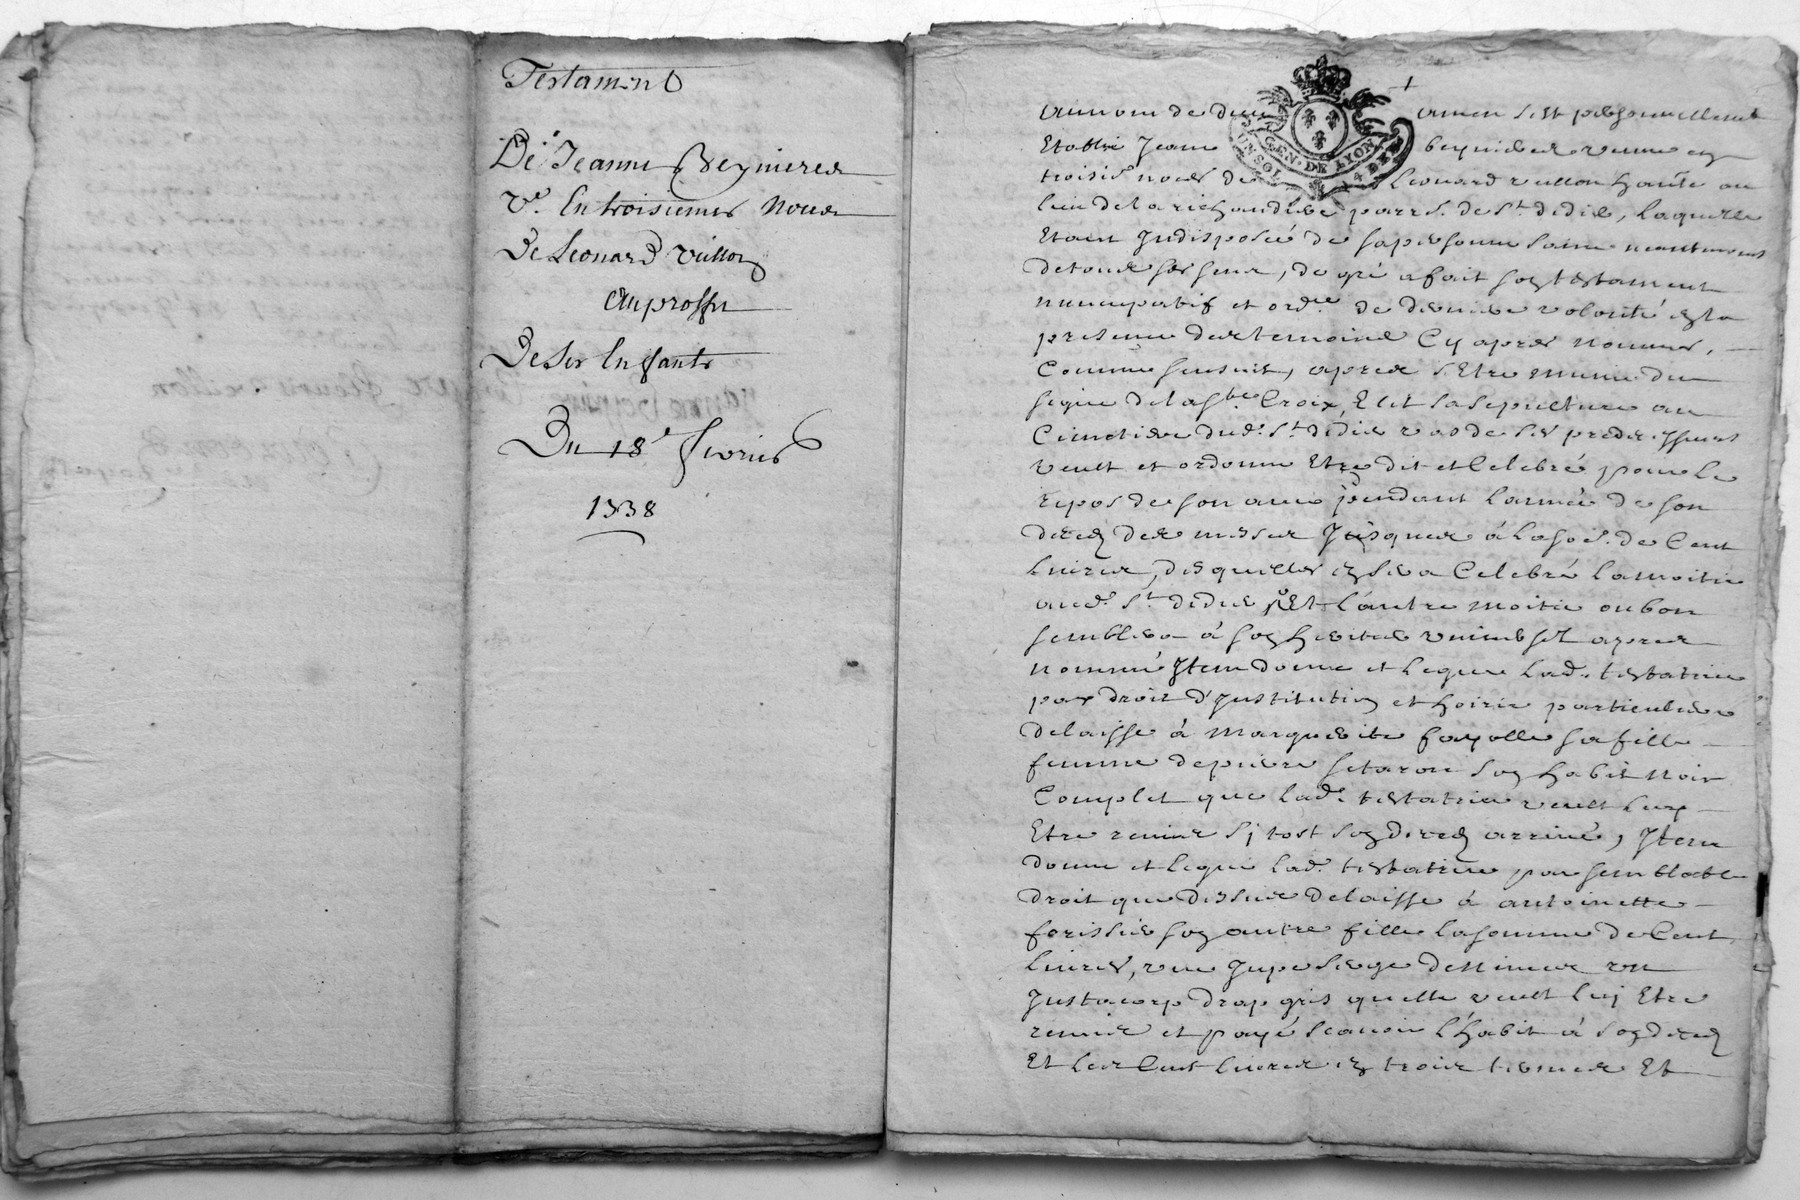 Testament
De Jeanne Beynieres
Ve. En troisiemes Noces
De Leonard Vuillon
Au proffit
De Ses Enfants
Du 18e. fevrier
1738
Au nom de dieu amen s'est personnellement
Etablie Jeane beynieres veuve en
troisie. noces de Leonard vuillon habite. au
lieu de la richaudiere parr.s de St. didie, laquelle
Etant Indisposée de sa personne saine neantmoins
de tous ses sens, de gré a fait son testament
nuncupatif et ordce. de derniere volonté en la
presence des temoins Cy apres nommes,
Comme sensuit, apres s'Etre munie du
signe de la Ste. Croix, Elit sa sepulture au
Cimetiere dud. St. didie vas de ses predecesseurs
veult et ordonne Etre dit et Celebré pour le
repos de son ame pendant l'année de son
deces des messes Jusques à la soe. de Cent
livres, desquelles en sera Celebré la moitie
aud. St. didie Et l'autre moitie ou bon
semblera à son heritier universel apres
nommé Item donne et legue lade. testatrice
par droit d'Institution et hoirie particuliere
delaisse à Marguerite fayolle sa fille
femme de pierre son habit noir
Complet que lade. testatrice veult luy
Etre remis si tost son deces arrivé, Item
donne et legue lad. testatrice par semblable
droit que dessus delaisse à antoinette
forissie son autre fille la somme de Cent
livres, une Jupe serge un
Justacorp drap gris quelle veult luj Etre
remis et payé scavoir l'habit à son deces
Et les Cent livres en trois termes Et
GEN. DE LYON
UN SOL 4 DEN